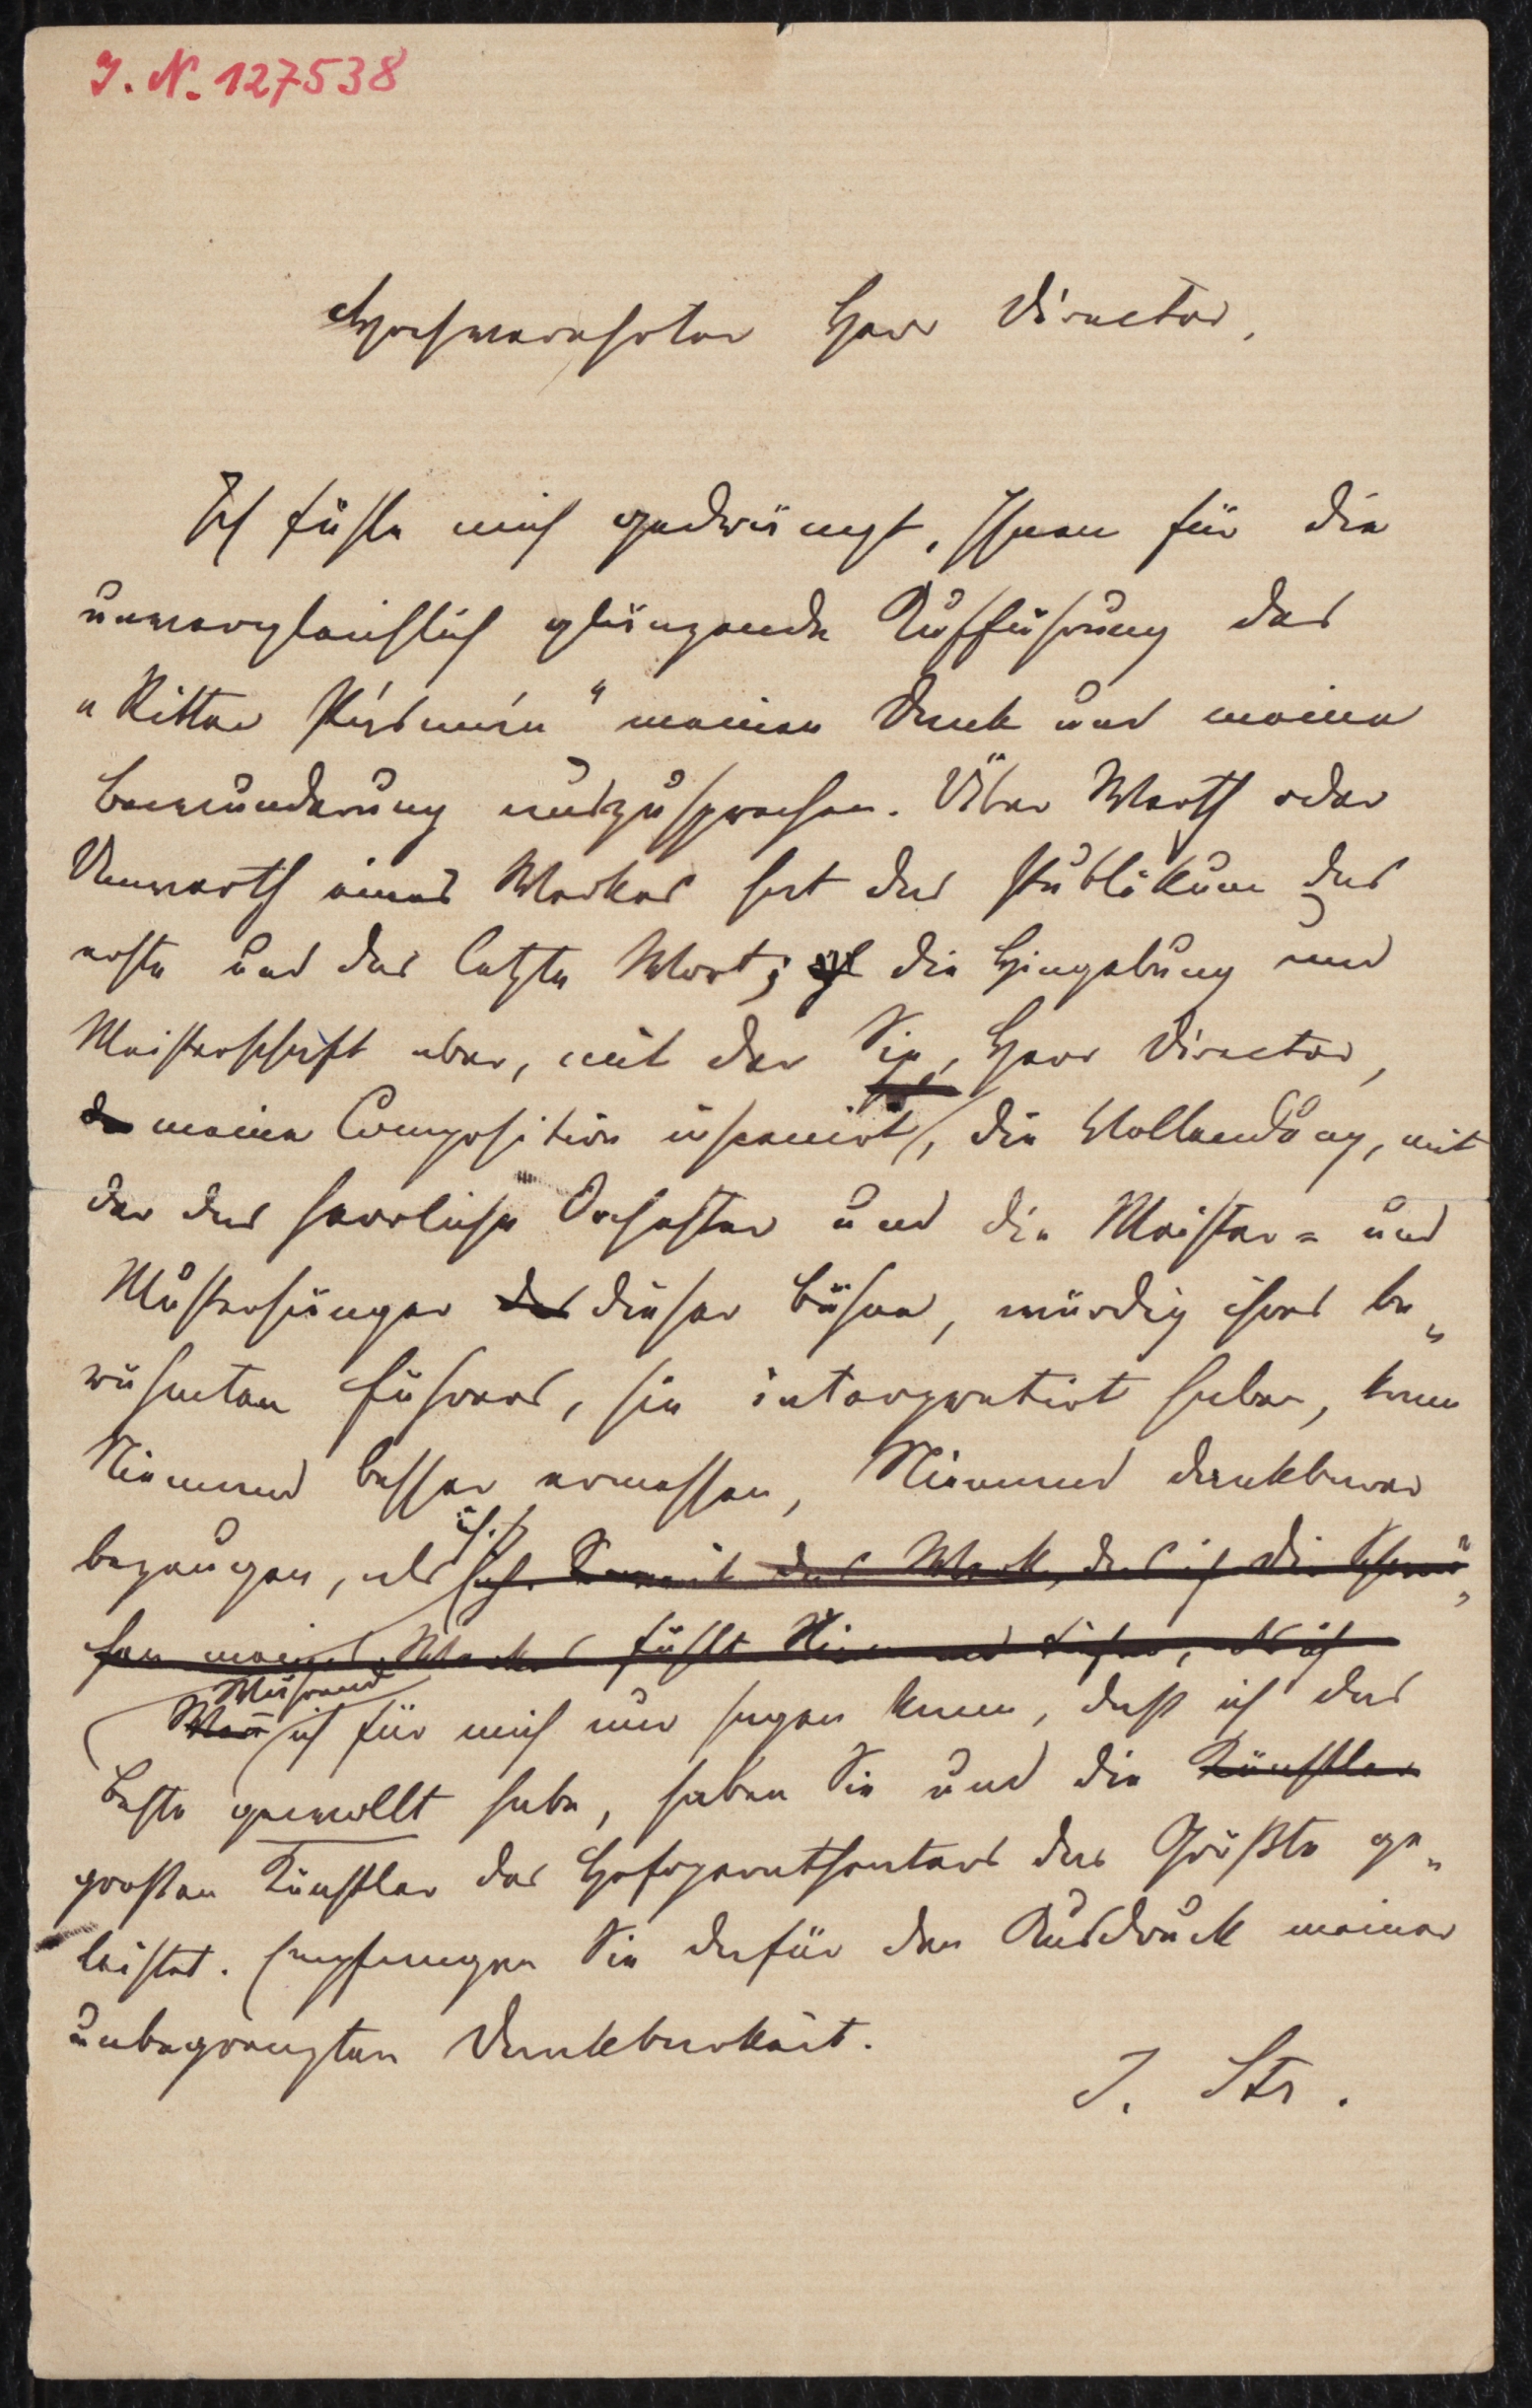 I. N. 127538
Hochverehrter Herr Director,
Ich fühle mich gedrängt, Ihnen für die
unvergleichlich glänzende Aufführung des
„Ritter Pásmán“ meinen Dank und meine
Bewunderung auszusprechen. Über Werth oder
Unwerth eines Werkes hat das Publikum das
erste und das letzte Wort; die Hingebung und
Meisterschaft aber, mit der Sie, Herr Director,
meine Composition inscenirt, die Vollendung, mit
der das herrliche Orchester und die Meister- und
Mustersänger der dieser Bühne, würdig ihres be„
rühmten Führers, sie interpretirt haben, kann
Niemand besser ermessen, Niemand dankbarer
bezeugen, als ich. das Werk, das ich die
meines Werkes fühlt Niemand
Während
Wenn ich für mich nur sagen kann, daß ich das
Beste gewollt habe, haben Sie und die Künstler
großen Künstler des Hofoperntheaters das Größte ge„
leistet. Empfangen Sie dafür den Ausdruck meiner
unbegrenzten Dankbarkeit.
J. Str.